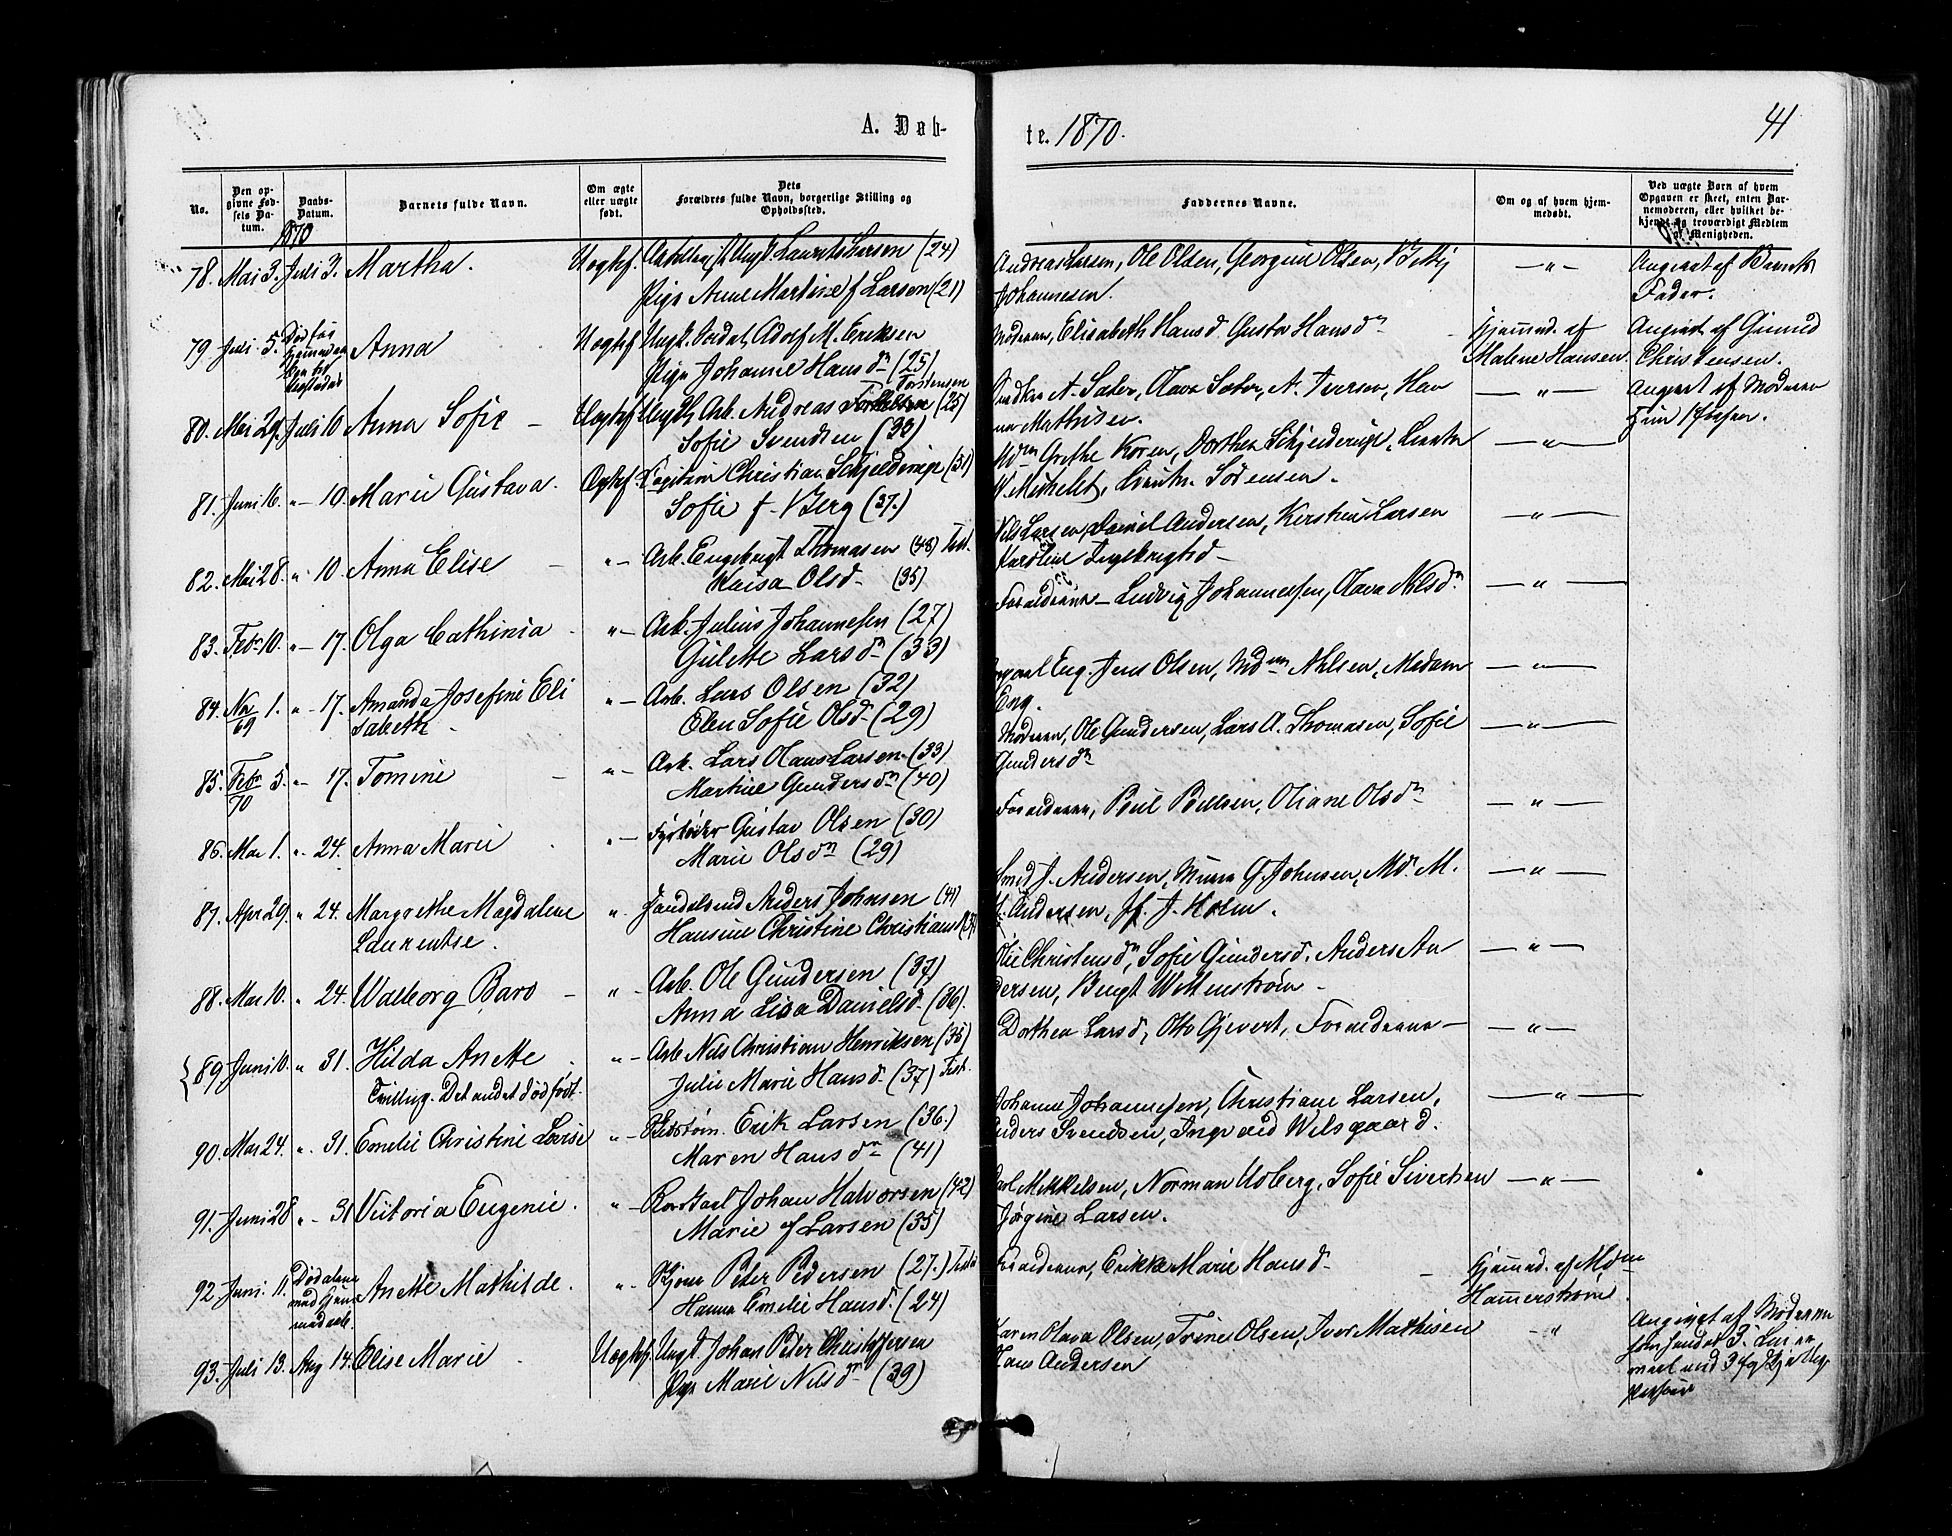 A. Døb-
te. 1870.
41
No.
Den op-
givne Fød-
sels Da-
tum.
Daabs-
Datum.
Barnets fulde Navn.
Om ægte
eller uægte
født.
Dets
Forældres fulde Navn, borgerlige Stilling og
Opholdssted.
Faddernes Navne.
Om og af hvem hjem-
medøbt.
Ved uægte Børn af hvem
Opgaven er skeet, enten Bar-
nemoderen, eller hvilket be-
kjendt og troværdigt Medlem
af Menigheden.
1870
78. Mai 3. Juli 3. Martha. Uægtef. Ungk. Laurits Larsen (24)
Pige Anne Martine f Larsen (21)
Andreas Larsen, Ole Olsen, Georgine Olsen, Betty
Johannesen.
— " —
Angivet af Barnets
Fader.
79. Juli 5. Anna Uægtef. Ungk. Soldat, Adolf M. Eriksen
Pige Johanne Hansdn (25)
Moderen, Elisabeth Hansd Gustav Hansdn
Hjemmed. af
Malene Hansen.
Angivet af Gunild
Christensen.
80. Mai 29. Juli 10 Anna Sofie — Uægtef Ungk, Arb. Andreas Torstensen (25)
Sofie Svendsen (30)
A. Sater, Olava Sater, A. Iversen, Han
na Mathisen.
— " —
Angivet af Moderen
81. Juni 16. " — 10. Marie Gustava. Ægtef. Capitain Christian Schjelderup (31)
Sofie f. Berg (37.)
Mdm Grethe Koren, Dorthea Schjelderup, Lieutn
Michelet, Lieutn. Sørensen.
— " —
82. Mai 28. " 10. Anna Elise — " — Arb. Engebregt Thomasen (48) Tist.
Kaisa Olsd — (35)
Nils Larsen, Daniel Andersen, Kerstine Larsen
Karoline Ingebrigtsd —
— " —
83. Febr 10. " — 17. Olga Cathinia " — Arb. Julius Johannesen (27)
Gulette Larsdn (33)
Forældrene — Ludvig Johannesen, Olava Nilsdn.
— " —
84. Nov/69 1. " — 17. Amanda Josefine Eli
sabeth. " — Arb. Lars Olsen (32)
Elen Sofie Olsd — (29)
Eng. Jens Olsen, Mdm Nilsen, Madam
Eng.
— " —
85. Febr/70 5. " — 17. Tomine — " — Arb. Lars Hans Larsen. (33)
Martine Gundersdn (40)
Moderen, Ole Gundersen, Lars A. Thomasen, Sofie
Gundersdn
— " —
86. Mar 1. " 24. Anna Marie " — Fyrbøder Gustav Olsen (30)
Marie Olsdn (29)
Forældrene, Poul Olsdn
— " —
87. Apr 29. " 24. Margrethe Magdalene
Laurentse. " Handelsmd Anders Johnsen (41)
Hansine Christine Christians
Smed J. Andersen, G. Johnsen, Md. M.
Andersen, Jf. J. Holm.
— " —
88. Mar 10. " 24. Walborg Bars — " — Arb. Ole Gundersen (37)
Anna Lisa Danielsd. (36).
Olie Christensdn, Sofie Gundersd. Anders An
dersen, Bengt Wittenstrøm —
— " —
89. Juni 10. " 31. Hilda Anette
Tvilling. Det andet dødfødt. " — Arb. Nils Christian Henriksen (35)
Julie Marie Hansd — (37) Tist.
Dorthea Larsd, Otto Gjevert, Forældrene —
— " —
90. Mar 24. " 31. Emelie Christine Lovise " — Erik Larsen (36.)
Maren Hansdn (41)
Johanne Johannesen, Christiane Larsen,
Anders Svendsen, Ingvald Welsgaard.
— " —
91. Juni 28 " — 31 Victoria Eugenie. " — Johan Halvorsen (42)
Marie f Larsen (35)
Carl Mikkelsen, Norman Usberg, Sofie Sivertsen
Jørgine Larsen.
— " —
92. Juni. 11. Anette Mathilde. " — Peter Pedersen (27.) Tist.
Hanna Emelie Hansd. (24)
Forældrene, Erikka Marie Hansd —
Hjemmed. af Mdm
Hammerstrøm.
93. Juli 13. Aug 14. Elise Marie. Uægtef. Ungk. Johan Peter Christofersen
Pige Marie Nilsdn (39)
Karen Olava Olsen, Trine Olsen, Iver Mathisen
Hans Andersen
— "
Angivet af Moderen